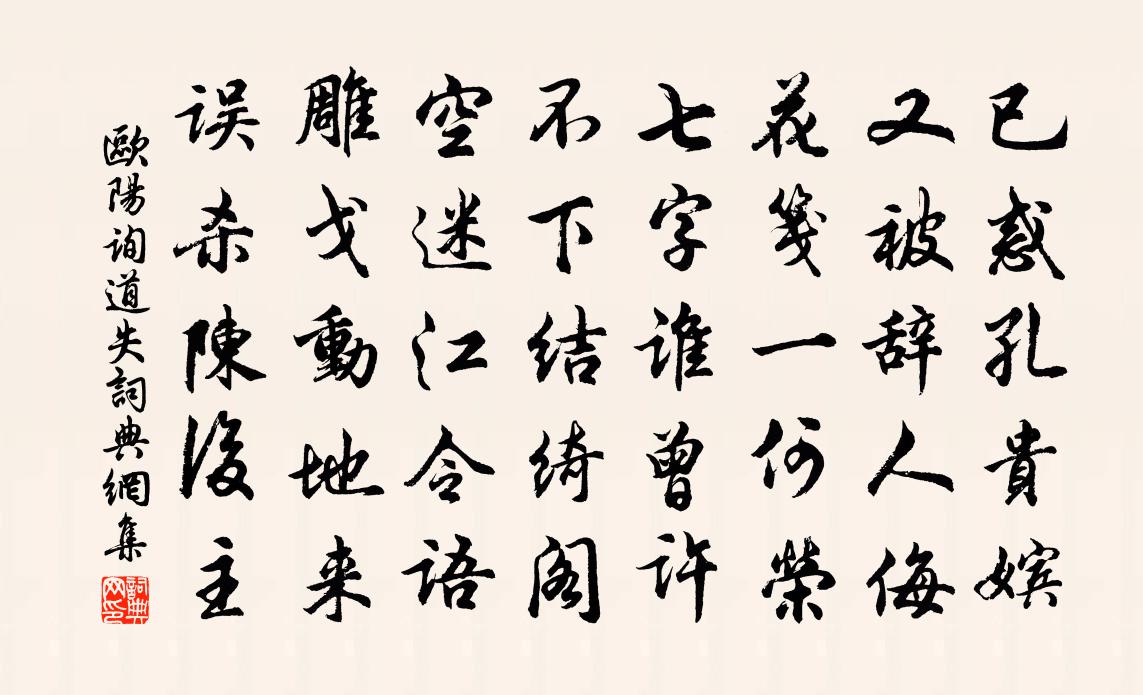 已惑孔貴嬪
又被辞人侮
花箋一何榮
七字谁曾许
不下结绮阁
空迷江令语
雕戈動地来
误杀陳後主
歐陽询道失詞典網集
詞典網印